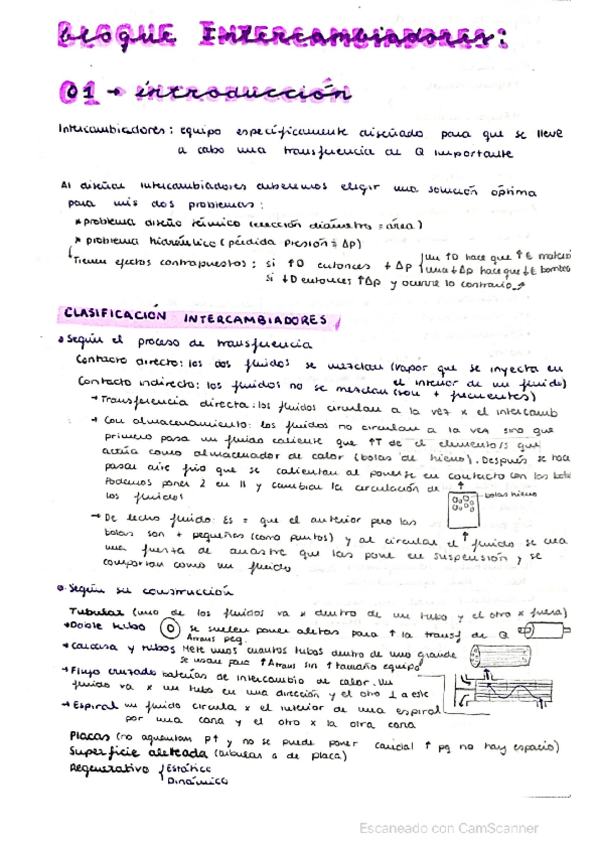 Bloque Intercambiadores:
01 → introducción
Intercambiadores: equipo específicamente diseñado para que se lleve
a cabo una transferencia de Q importante
Al diseñar intercambiadores deberemos elegir una solución óptima
para mis dos problemas:
* problema diseño térmico (elección diámetro = área)
* problema hidráulico (pérdida presión = Δp)
Tienen efectos contrapuestos: si ↑D entonces ↓Δp { un ↑D hace que ↑£ material
una ↓Δp hace que ↓£ bombeo
si ↓D entonces ↑Δp y ocurre lo contrario
CLASIFICACIÓN INTERCAMBIADORES
Según el proceso de transferencia
Contacto directo: los dos fluidos se mezclan (vapor que se inyecta en
el interior de un fluido)
Contacto indirecto: los fluidos no se mezclan (son + frecuentes)
→ Transferencia directa: los fluidos circulan a la vez x el intercamb
→ Con almacenamiento: los fluidos no circulan a la vez sino que
primero pasa un fluido caliente que ↑T de el elemento/s que
actúa como almacenador de calor (bolas de hierro). Después se hace
pasar aire frío que se calientan al ponerse en contacto con las bolas
Podemos poner 2 en || y cambiar la circulación de
los fluidos
bolas hierro
→ De lecho fluido: Es = que el anterior pero las
bolas son + pequeñas (como puntos) y al circular el fluido se crea
una fuerza de arrastre que las pone en suspensión y se
comportan como un fluido
Según su construcción
Tubular (uno de los fluidos va x dentro de un tubo y el otro x fuera)
→ Doble tubo se suelen poner aletas para ↑ la transf de Q
Atrans peq.
→ Carcasa y tubos Mete unos cuantos tubos dentro de uno grande
Se usan para ↑Atrans sin ↑tamaño equipo
→ Flujo cruzado baterías de intercambio de calor. Un
fluido va x un tubo en una dirección y el otro ⊥ a este
→ Espiral un fluido circula x el interior de una espiral
por una cara y el otro x la otra cara
Placas (no aguantan P↑ y no se puede poner caudal ↑ pq no hay espacio)
Superficie aleteada (tubulas o de placa)
Regenerativo { Estático
Dinámico
Escaneado con CamScanner